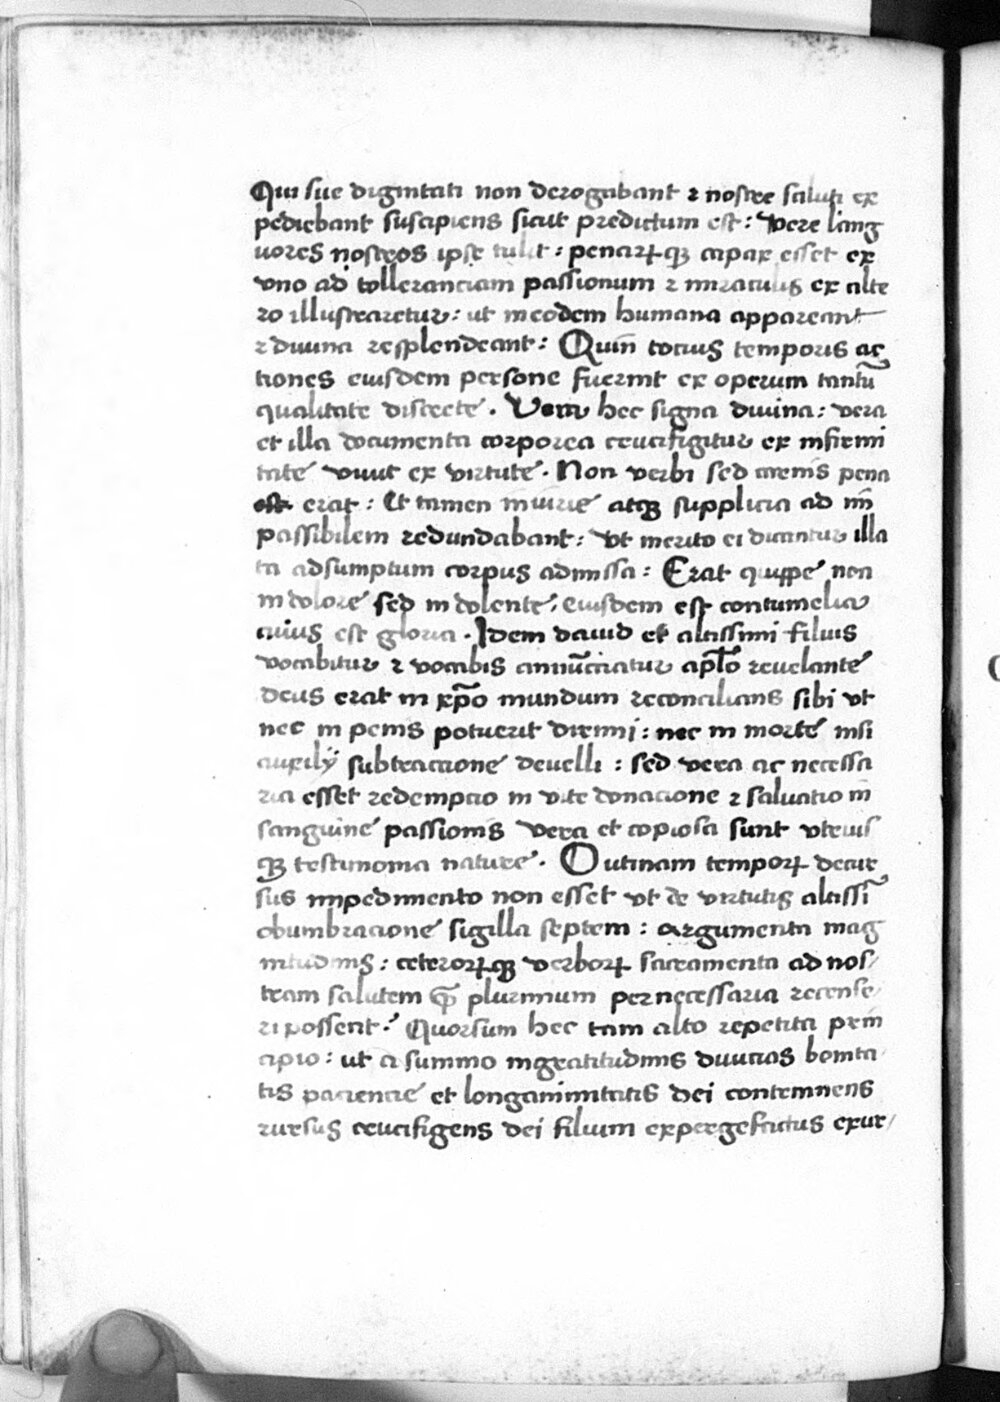 Qui sue dignitati non derogabant ⁊ nostre saluti ex
pediebant suscipiens sicut predictum est : Vere lang
uores nostros ipse tulit : penarꝝqꝫ capax esset ex
vno ad tolleranciam passionum ⁊ miraculis ex alte
ro illustraretur : ut in eodem humana appareant
⁊ diuina resplendeant : Quin̄ tocius temporis ac
tiones eiusdem persone fuerint ex operum tantū
qualitate discrete . Vera hec signa diuina : vera
et illa documenta corporea crucifigitur ex infirmi
tate viuit ex virtute . Non verbi sed carnis pena
erat : Et tamen iniurie atqꝫ supplicia ad im̄
passibilem redundabant : Vt merito ei dicantur illa
ta adsumptum corpus admissa : Erat quippe non
in dolore sed in dolente . eiusdem est contumelia
cuius est gloria . Idem dauid et altissimi filius
vocabitur ⁊ vocabis annūciatur apl̄o reuelante
deus erat in xp̄o mundum reconcilians sibi vt
nec in penis potuerit dirimi : nec in morte insi
auxilÿ subtractione deuelli : sed vera ac necessa
ria esset redempcio in vite donacione ⁊ saluatio in
sanguine passionis vera et copiosa sunt vtrius
qꝫ testimonia nature . O utinam temporꝝ decur
sus impedimento non esset vt de virtutis altissi͞
obumbracione sigilla septem : argumenta mag
nitudinis : ceterorꝝqꝫ verborꝝ sacramenta ad nos/
tram salutem qͣ plurimum pernecessaria recense/
ri possent . Quorsum hec tam alto repetita prin
cipio : ut a summo ingratitudinis diuicias bonita
tis paciencie et longanimitatis dei contemnens
rursus crucifigens dei filium expergefactus exur/